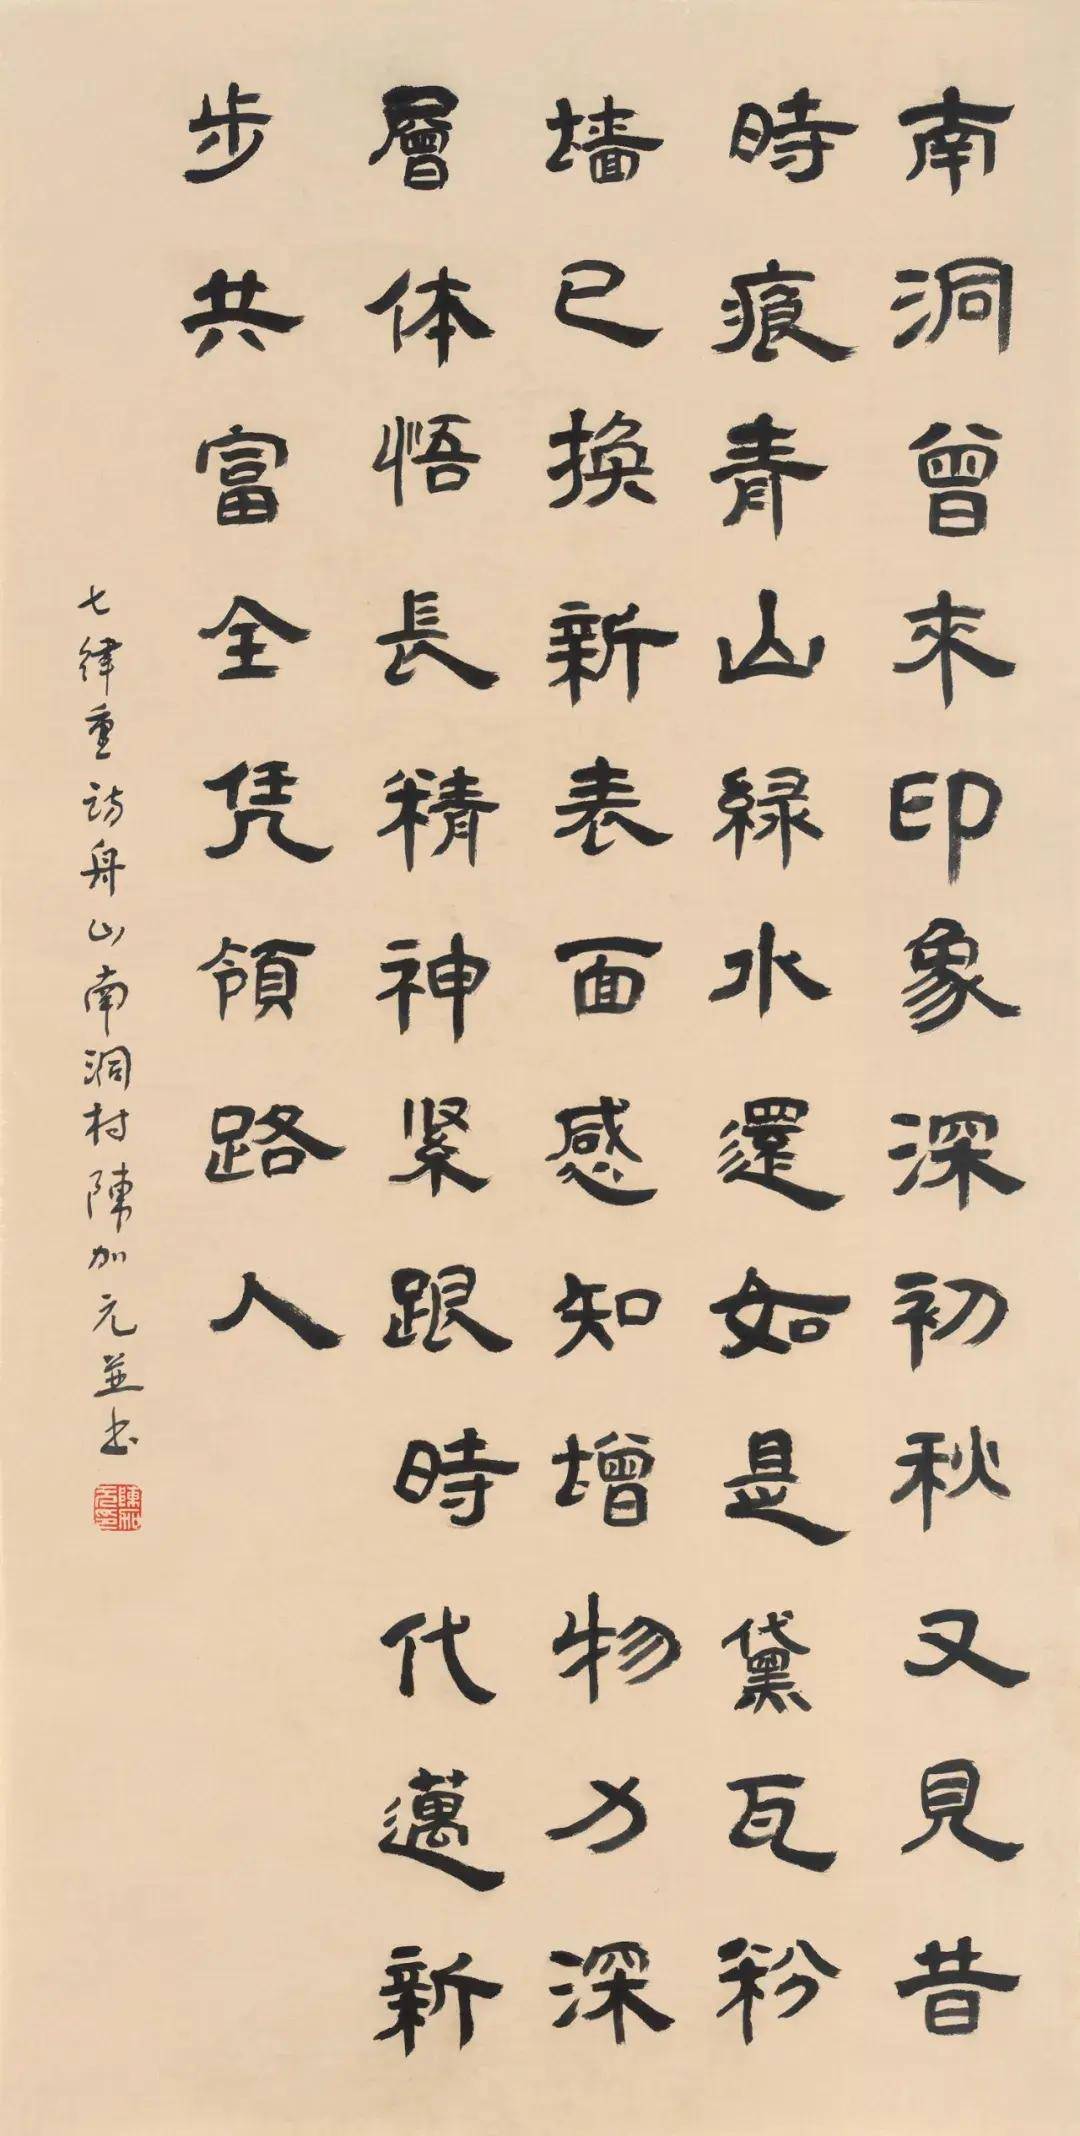 南洞曾來印象深初秋又見昔
時痕青山緑水還如是黛瓦粉
墻已換新表面感知增物力深
層体悟長精神紧跟時代邁新
步共富全凭領路人
七律重訪舟山南洞村陳加元並书
陳加元印